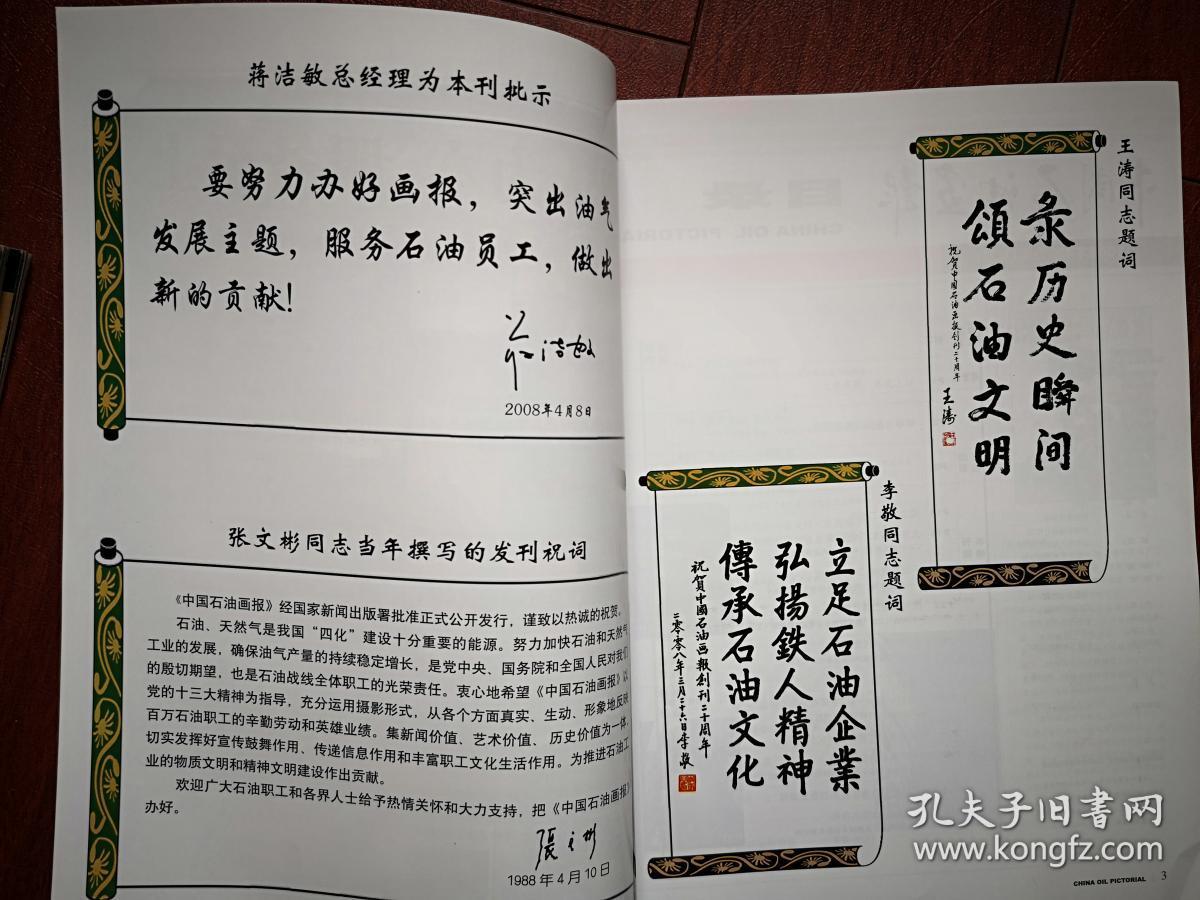 蒋洁敏总经理为本刊批示
要努力办好画报，突出油气
发展主题，服务石油员工，做出
新的贡献！
蒋洁敏
2008年4月8日
张文彬同志当年撰写的发刊祝词
《中国石油画报》经国家新闻出版署批准正式公开发行，谨致以热诚的祝贺。
石油、天然气是我国“四化”建设十分重要的能源。努力加快石油和天然气
工业的发展，确保油气产量的持续稳定增长，是党中央、国务院和全国人民对我们
的殷切期望，也是石油战线全体职工的光荣责任。衷心地希望《中国石油画报》以
党的十三大精神为指导，充分运用摄影形式，从各个方面真实、生动、形象地反映
百万石油职工的辛勤劳动和英雄业绩。集新闻价值、艺术价值、历史价值为一体，
切实发挥好宣传鼓舞作用、传递信息作用和丰富职工文化生活作用。为推进石油工
业的物质文明和精神文明建设作出贡献。
欢迎广大石油职工和各界人士给予热情关怀和大力支持，把《中国石油画报》
办好。
張文彬
1988年4月10日
王涛同志题词
录历史瞬间
頌石油文明
祝贺中国石油画报创刊二十周年
王涛
李敬同志题词
立足石油企業
弘揚鉄人精神
傳承石油文化
祝贺中國石油画报創刊二十周年
二零零八年三月二十六日李敬
CHINA OIL PICTORIAL 3
孔夫子旧书网
www.kongfz.com